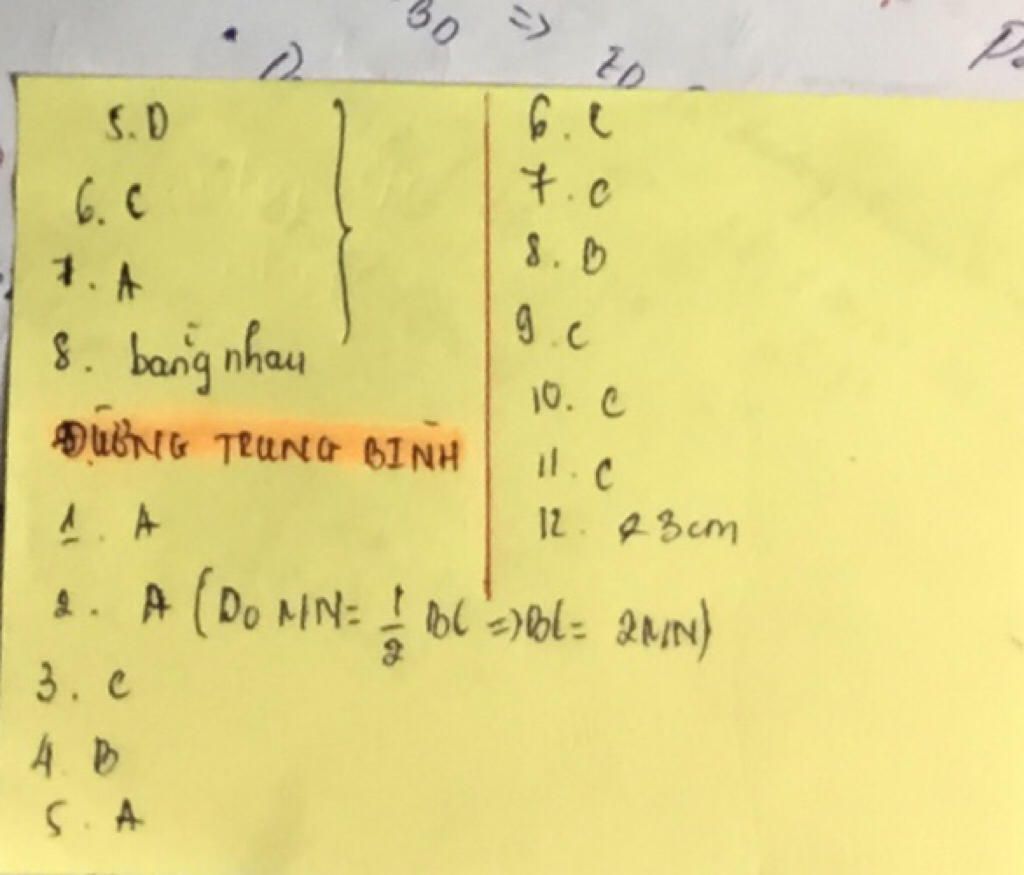 BD =>
ED
5. D
6. C
7. A
8. bằng nhau
ĐƯỜNG TRUNG BÌNH
1. A
2. A (Do MN = 1/2 BC => BC = 2MN)
3. C
4. B
5. A
6. C
7. C
8. B
9. C
10. C
11. C
12. 23cm